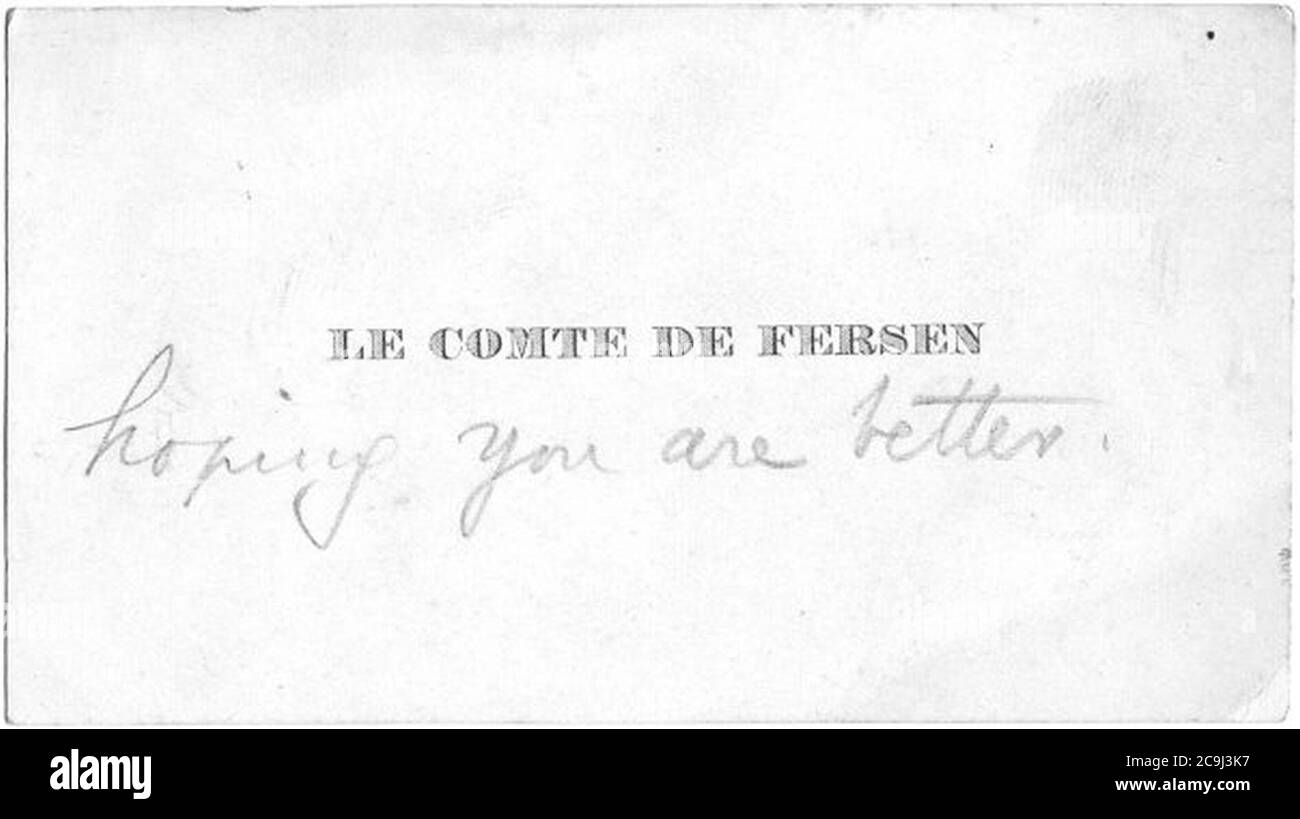 LE COMTE DE FERSEN
hoping you are better.
a
a
a
a
alamy
Image ID: 2C9J3K7
www.alamy.com